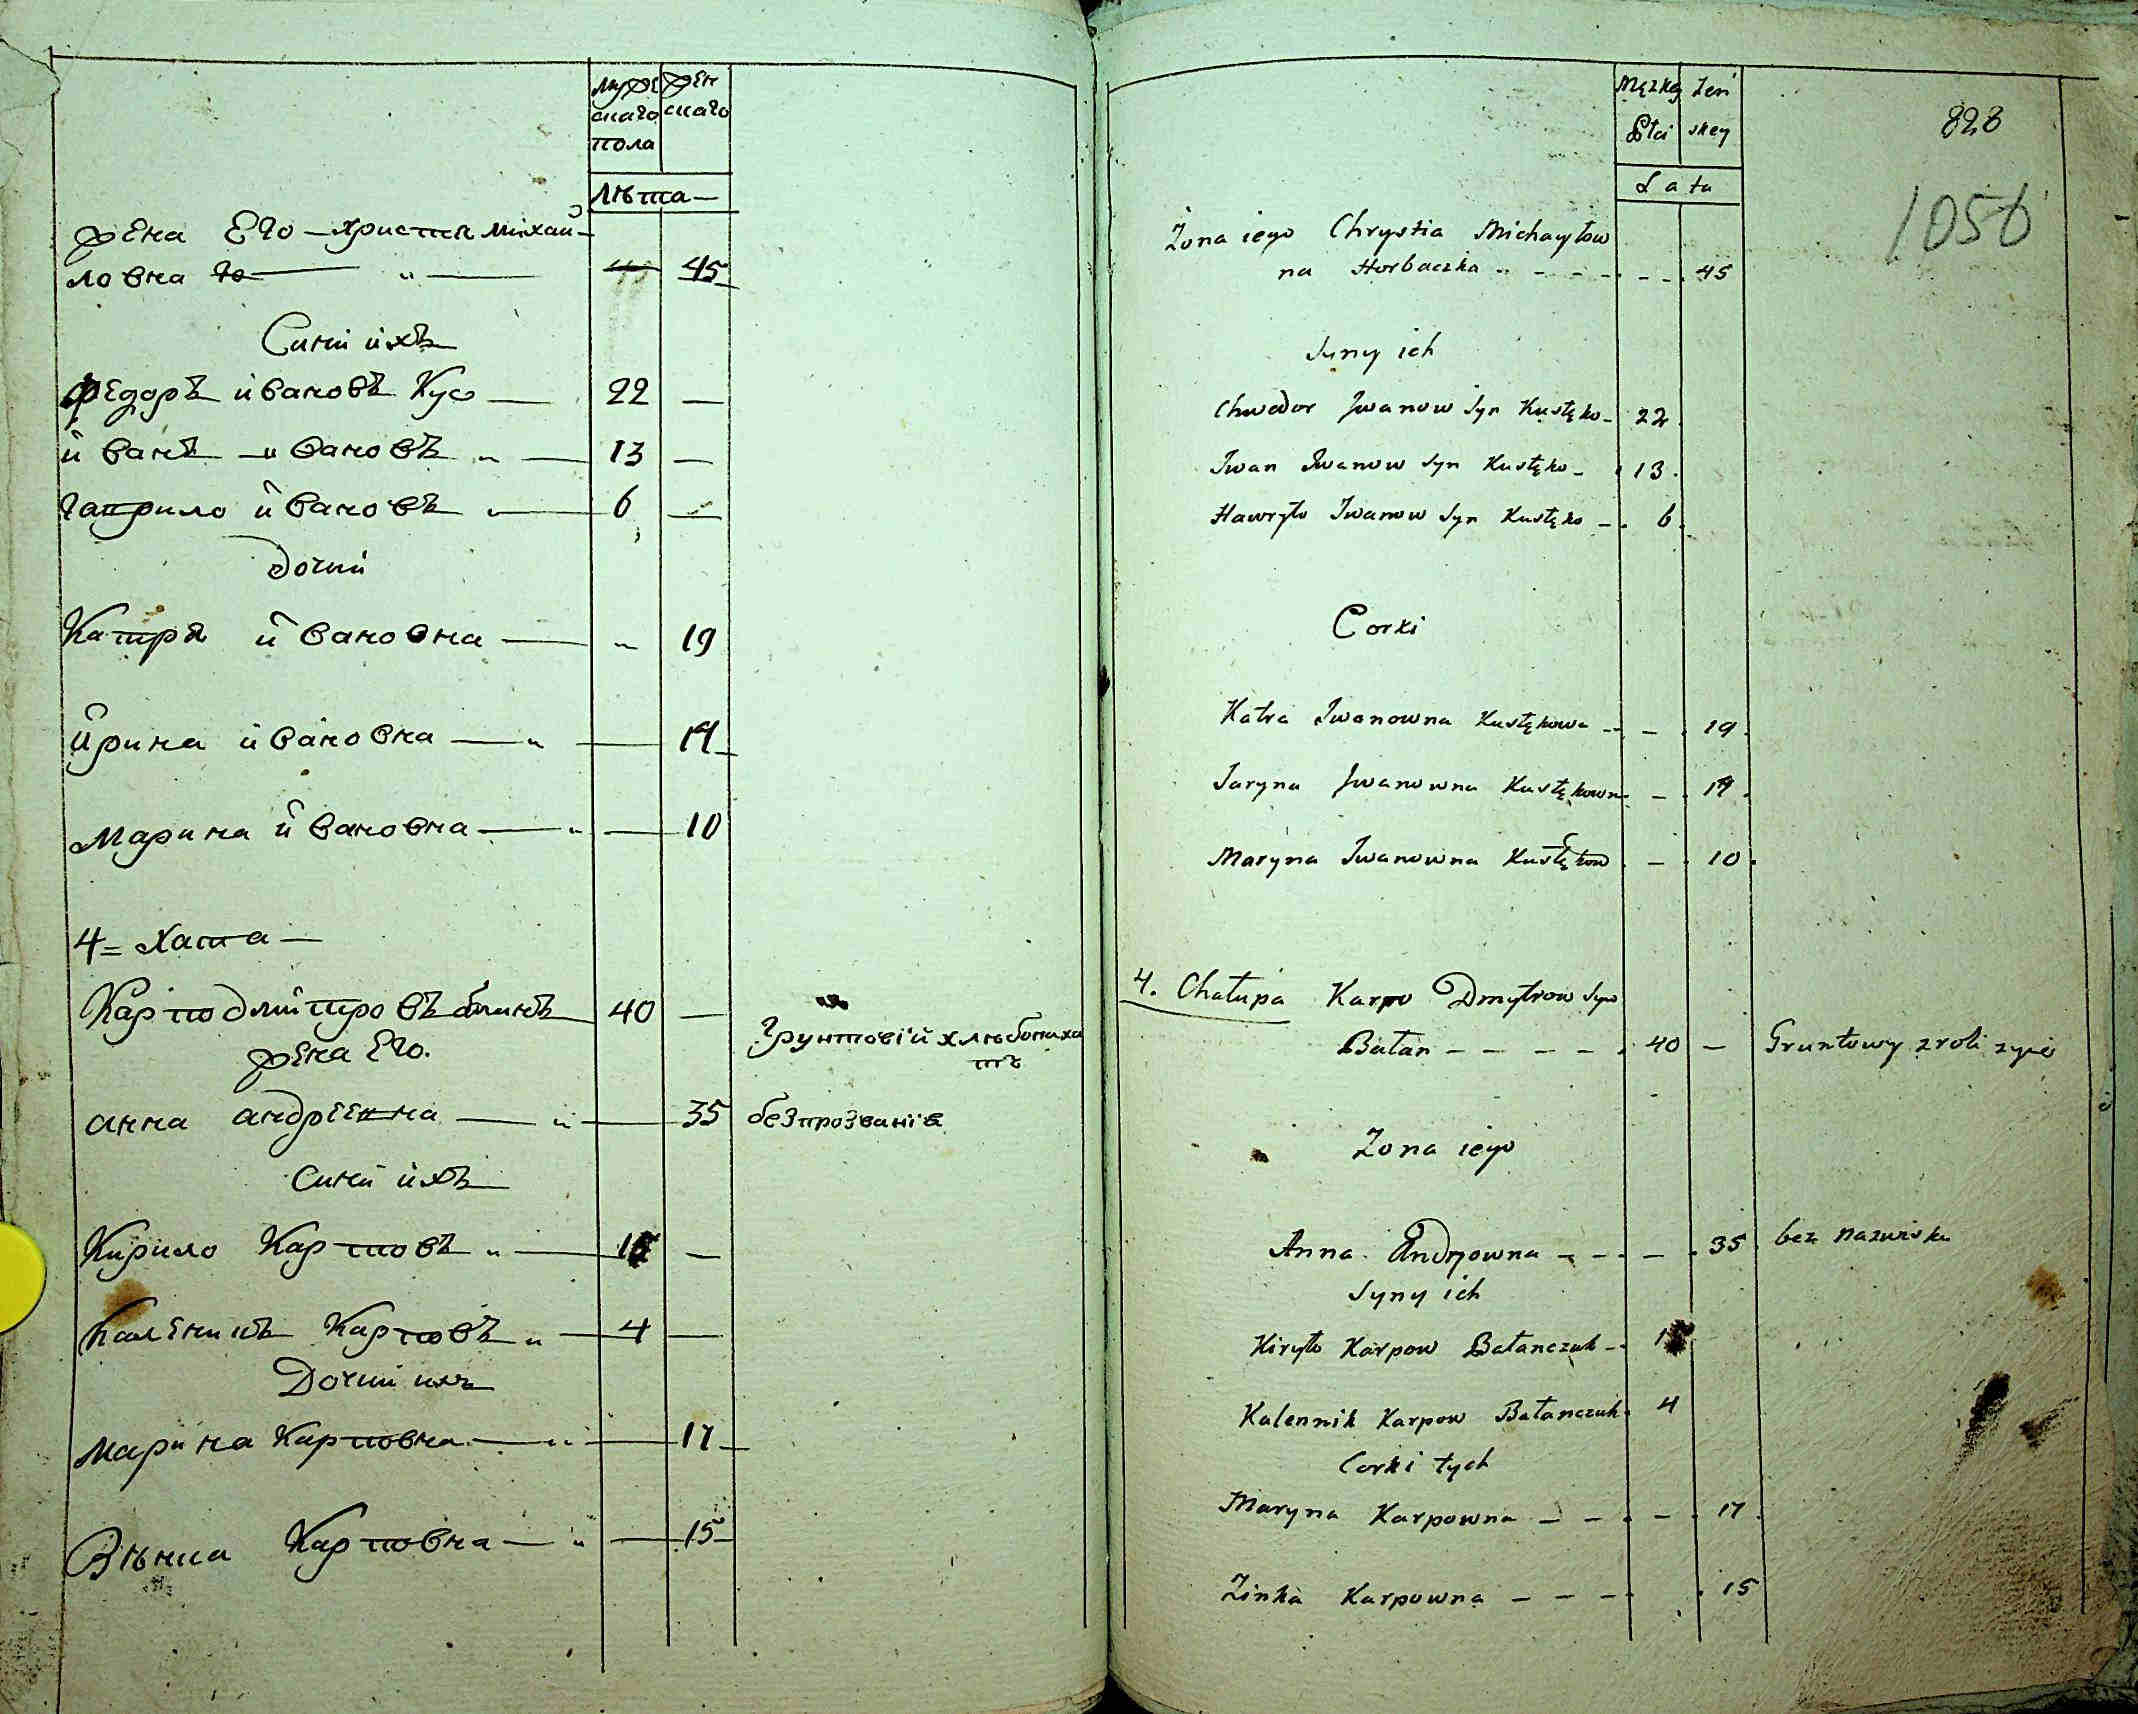 мужескаго пола женскаго
лѣта
жена Его Христя михай
ловна го 45
Сини ихъ
Федоръ ивановъ Кус 22
иванъ ивановъ 13
гаврило ивановъ 6
дочки
Катря ивановна 19
ирина ивановна 14
Марина ивановна 10
4 = Хата
Карпо дмитровъ 40
жена Его.
грунтовій хлѣбопаха
тъ
анна андреевна 35 безпрозваніѣ
сини ихъ
Кирило Карповъ 15
каленикъ Карповъ 4
Дочки ихъ
марина Карповна 17
Зѣнка Карповна 15
Męzkey Płci Zeń skey
Lata
828
1056
Żona iego Chrystia Michayłow
na Horbaczka 45
Syny ich
Chwedor Jwanow Syn Kustęko 22
Iwan Iwanow Syn Kustęko 13
Hawryło Iwanow Syn Kustęko 6
Corki
Katra Iwanowna Kustękowa 19
Jaryna Jwanowna Kustękown 14
Maryna Iwanowna Kustękow 10
4. Chałupa Karpo Dmytrow Syn
Bałan 40 Gruntowy z roli żyie
Zona iego
Anna Andrjowna 35 bez nazwiska
Syny ich
Kiryło Karpow Bałanczuk 15
Kalennik Karpow Bałanczuk 4
Corki tych
Maryna Karpowna 17
Zinka Karpowna 15